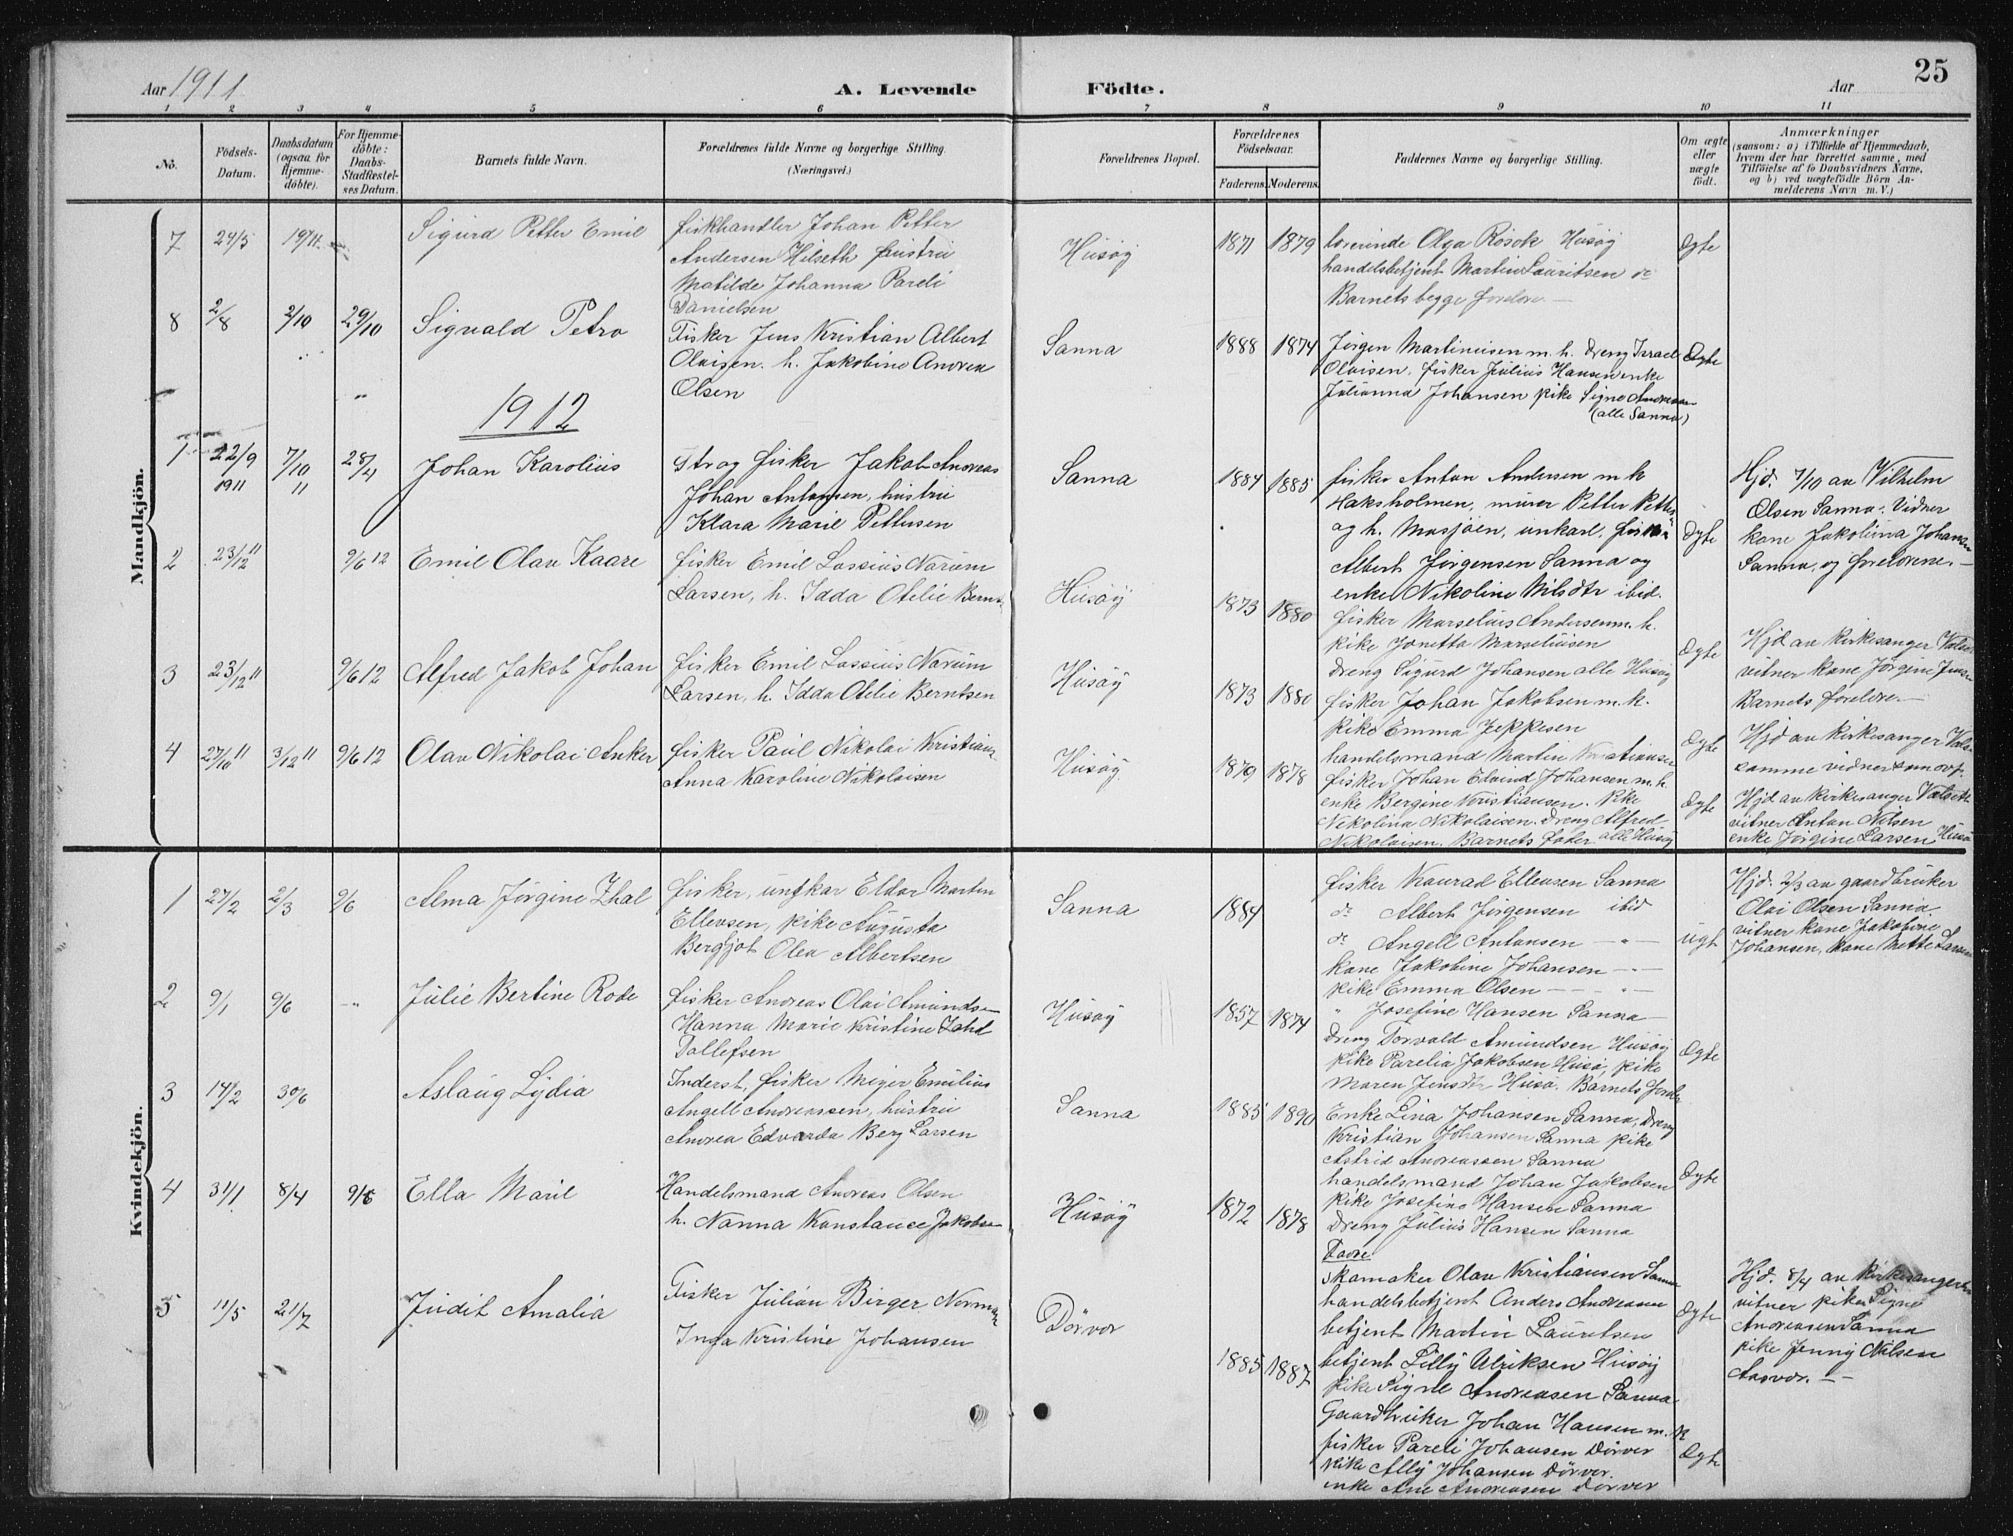 25
Aar 1911
A. Levende Födte.
Aar
1 2 3 4 5 6 7 8 9 10 11
No.
Födsels-Datum.
Daabsdatum (ogsaa for Hjemme-døbte).
For Hjemme-döbte: Daabs-Stadfæstel-ses Datum.
Barnets fulde Navn.
Forældrenes fulde Navne og borgerlige Stilling. (Næringsvei.)
Forældrenes Bopæl.
Forældrenes Födselsaar.
Faderens. Moderens.
Faddernes Navne og borgerlige Stilling.
Om ægte eller uægte födt.
Anmærkninger
(saasom: a) i Tilfælde af Hjemmedaab,
hvem der har forrettet samme, med
Tilföielse af to Daabsvidners Navne,
og b) ved uægtefödte Börn An-
melderens Navn m. V.)
Mandkjön.
7 24/5 19/11 Sigurd Petter Emil
fiskhandler Johan Petter
Andersen Hilseth hustru
Matilde Johanna Pareli
Danielsen
Husöy 1871 1879
lærerinde Olga Rösok Husöy
handelsbetjent Martin Lauritsen do
Barnets begge foreldre. —
Ægte
8 2/8 2/10 29/10 Sigvald Petro
Fisker Jens Kristian Albert
Olaisen. h. Jakobine Andrea
Olsen
Sanna 1888 1874
Jörgen Martinusen m. h. dreng Israel
Olaisen, fisker Julius Hansen enke
Julianna Johansen pike Signe Andreasen
(alle Sanna)
Ægte
1912
1 22/9 1911 7/10 11 28/4 Johan Karolius
Strog fisker Jakob Andreas
Johan Antonsen, hustru
Klara Marie Pettersen
Sanna 1884 1885
fisker Anton Andersen m h
Haksholmen, murer Petter Petters
og h. Mosjöen, unkarl, fisker
Albert Jörgensen Sanna og
enke Nikoline Nilsdtr ibid.
Ægte
Hjd. 7/10 av Vilhelm
Olsen Sanna. Vidner
kone Jakobina Johansen
Sanna, og foreldrene. —
2 23/12 11 9/6 12 Emil Olav Kaare
fisker Emil Lossius Narum
Larsen, h. Idda Otelie Bernt.
Husöy 1873 1880
fisker Marselius Andersen m. h.
pike Jonetta Marseliusen
dreng Sigurd Johansen alle Husöy
Ægte
Hjd av kirkesanger Valseth
vitner kone Jörgine Jensen
Barnets foreldre. —
3 23/12 11 9/6 12 Alfred Jakob Johan
fisker Emil Lossius Narum
Larsen, h. Idda Otelie Berntsen
Husöy 1873 1880
fisker Johan Jakobsen m. h.
pike Emma Jeppesen
handelsmand Martin Kristiansen
Ægte
Hjd av kirkesanger Vals
samme vidner som ovf.
4 27/10 11 3/12 11 9/6 12 Olav Nikolai Anker
fisker Paul Nikolai Kristians.
Anna Karoline Nikolaisen
Husöy 1879 1878
fisker Johan Edvind Johansen m. h.
enke Bergine Kristiansen. Pike
Nikolina Nikolaisen. dreng Alfred
Nikolaisen. Barnets fater. alle Husöy
Ægte
Hjd av kirkesanger Valseth
vitner Anton Nilsen
enke Jörgine Larsen Husö
Kvindekjön.
1 27/2 2/3 9/6 Alma Jörgine Thal
fisker, ungkar Eldar Martin
Ellevsen, pike Augusta
Bergljot Olea Albertsen
Sanna 1884
fisker Konrad Ellevsen Sanna
do Albert Jörgensen ibid
do Angell Antonsen — " —
kone Jakobine Johansen — " —
pike Emma Olsen — " —
" Josefine Hansen Sanna
uegt
Hjd. 2/3 av gaardbruker
Olai Olsen Sanna.
vitner kone Jakobine
Johansen, kone Mette Larsen
2 9/1 9/6 — Julie Bertine Rode
fisker Andreas Olai Amundsen
Hanna Marie Kristine Zahl
Tollefsen
Husöy 1857 1874
dreng Torvald Amundsen Husöy
pike Parelia Jakobsen Husö, pike
Maren Jensdtr Husö. Barnets foreldr
Ægte
3 14/2 30/6 Aslaug Lydia
Inderst, fisker Meyer Emilius
Angell Andreassen, hustru
Andrea Edvarda Berg Larsen
Sanna 1885 1890
Enke Lina Johansen Sanna, dreng
Kristian Johansen Sanna pike
Astrid Andreassen Sanna
Ægte
4 31/1 8/4 9/6 Ella Marie
Handelsmand Andreas Olsen
h. Nanna Konstance Jakobsen
Husöy 1872 1878
handelsmand Johan Jakobsen
pike Josefine Hansen Sanna
dreng Julius Hansen Sanna
Skomaker Olav Kristiansen Sanna
handelsbetjent Anders Andreasen
betjent Martin Lauritsen
betjent Lilly Ulriksen Husöy
pike Signe Andreasen Sanna
Ægte
Hjd. 8/4 av kirkesangeren
vitner pike Signe
Andreasen Sanna
pike Jenny Nilsen
Aasvær. —
5 11/5 21/7 Judit Amalia
Fisker Julian Birger Norman
Inga Kristine Johansen
Dörvær 1885 1887
Gaardbruker Johan Hansen m. k
fisker Pareli Johansen Dörver
pike Ally Johansen Dörver.
enke Ane Andreasen Dörver
Ægte